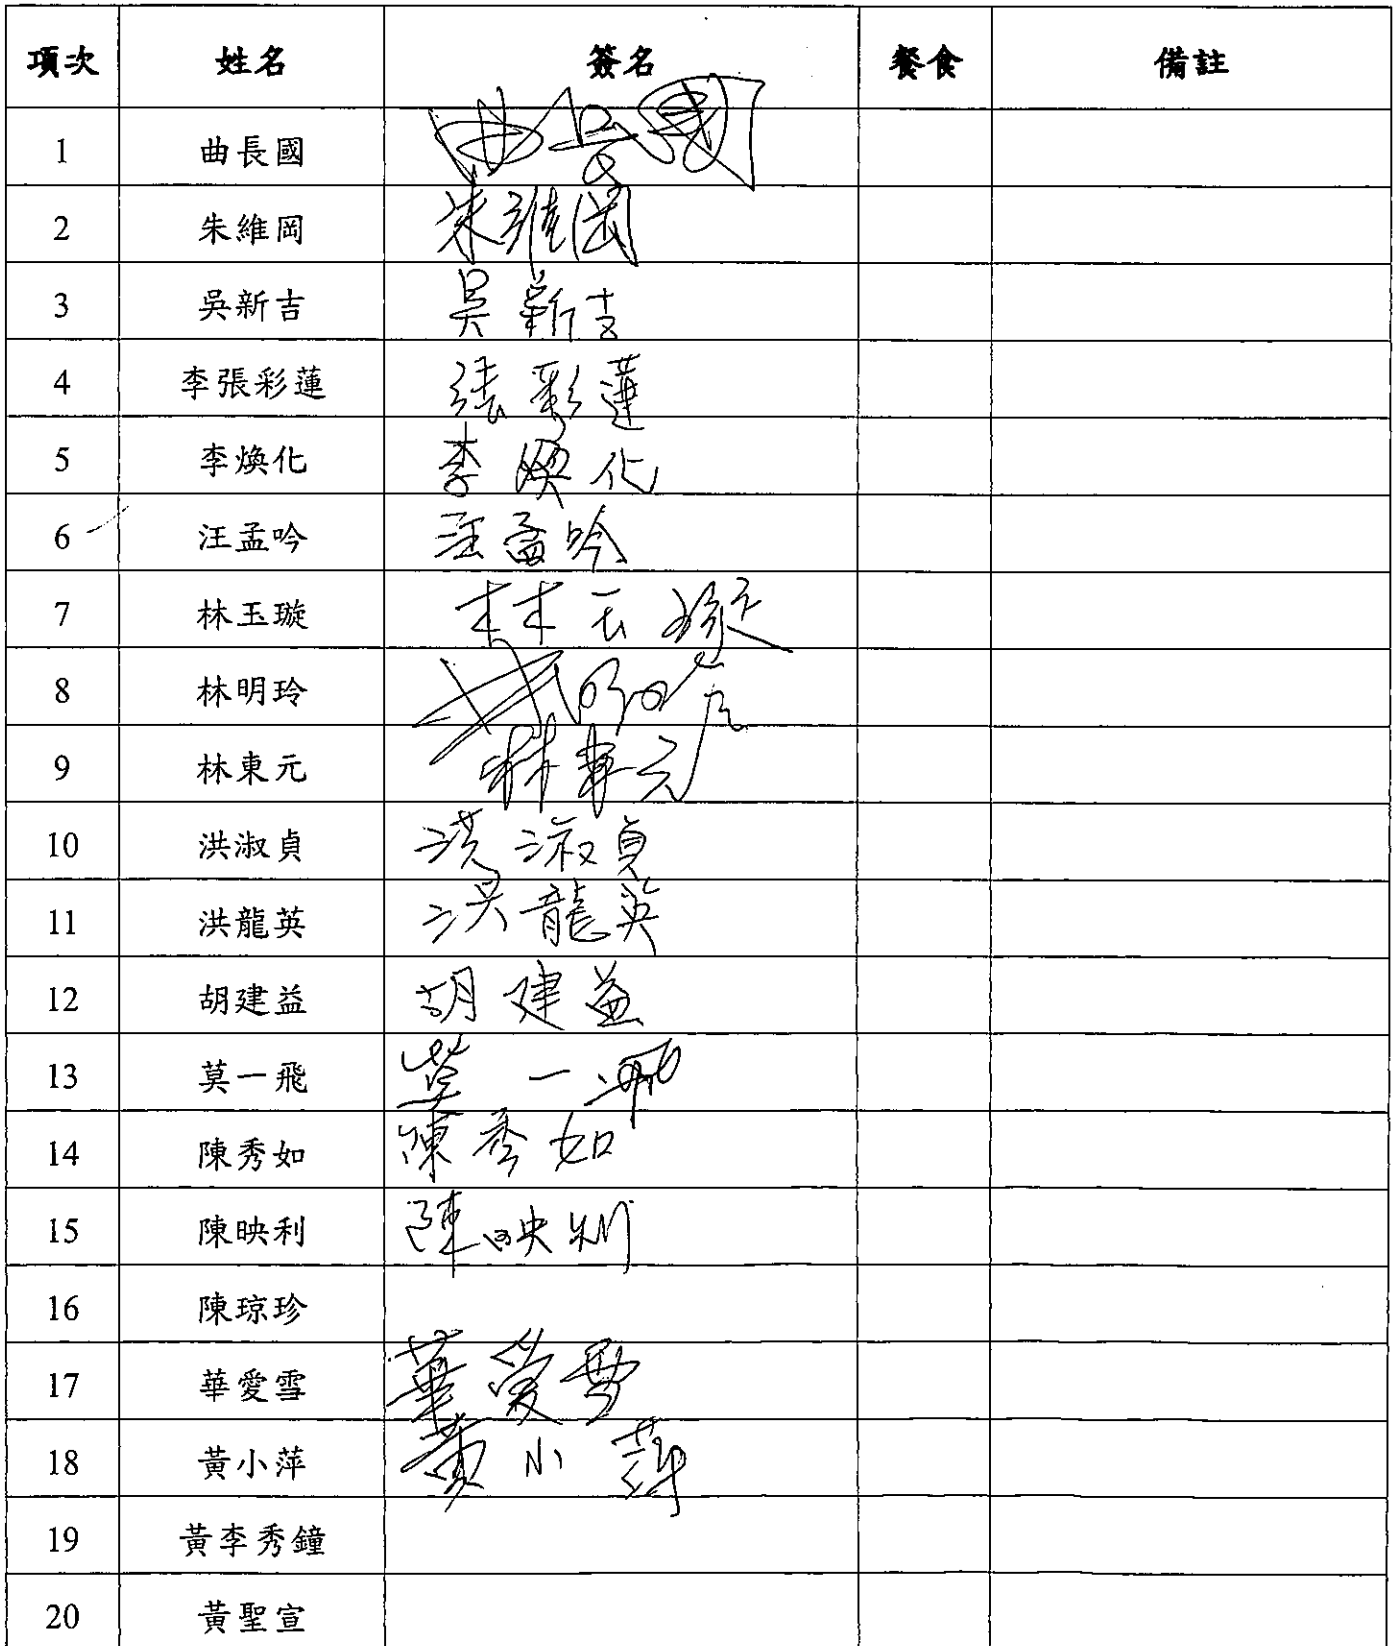 項次 姓名 簽名 餐食 備註
1 曲長國 曲長國
2 朱維岡 朱維岡
3 吳新吉 吳新吉
4 李張彩蓮 張彩蓮
5 李煥化 李煥化
6 汪孟吟 汪孟吟
7 林玉璇 林玉璇
8 林明玲 林明玲
9 林東元 林東元
10 洪淑貞 洪淑貞
11 洪龍英 洪龍英
12 胡建益 胡建益
13 莫一飛 莫一飛
14 陳秀如 陳秀如
15 陳映利 陳映利
16 陳琼珍
17 華愛雪 華愛雪
18 黃小萍 黃小萍
19 黃李秀鐘
20 黃聖宣